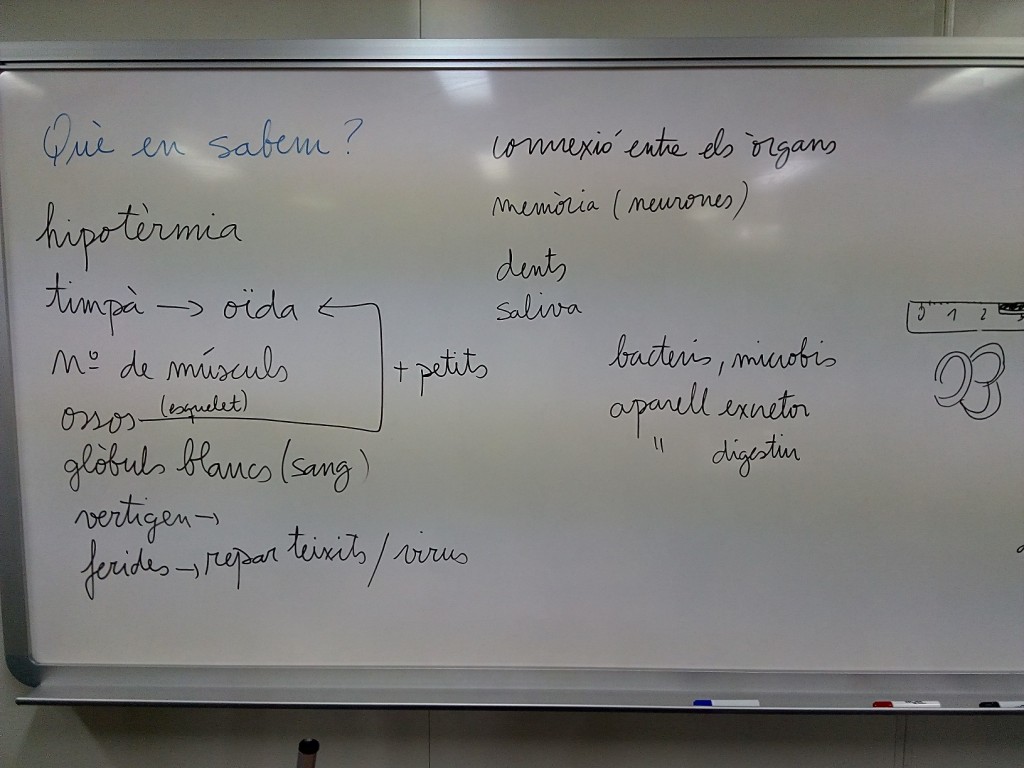 Què en sabem?
hipotèrmia
timpà → oïda ←
nº de músculs
+ petits
ossos (esquelet)
glòbuls blancs (sang)
vertigen →
ferides → repar teixits / virus
connexió entre els òrgans
memòria (neurones)
dents
saliva
bacteris, microbis
aparell excretor
" digestiu
0 1 2